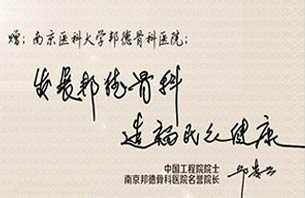 赠：南京医科大学邦德骨科医院：
发展邦德骨科
造福民众健康
中国工程院院士
南京邦德骨科医院名誉院长